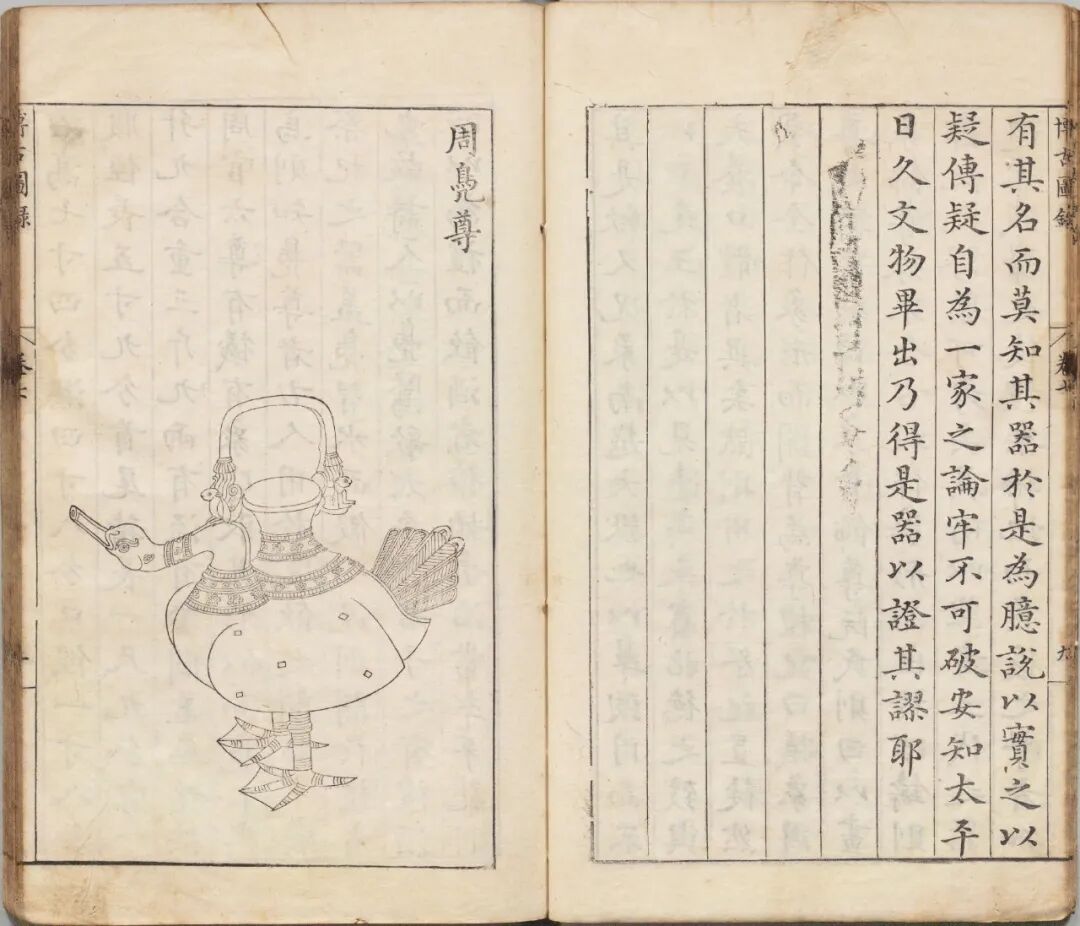 博古圖錄 卷七 九
有其名而莫知其器於是為臆說以實之以
疑傳疑自為一家之論牢不可破安知太平
日久文物畢出乃得是器以證其謬耶
周鳧尊
博古圖錄 卷七